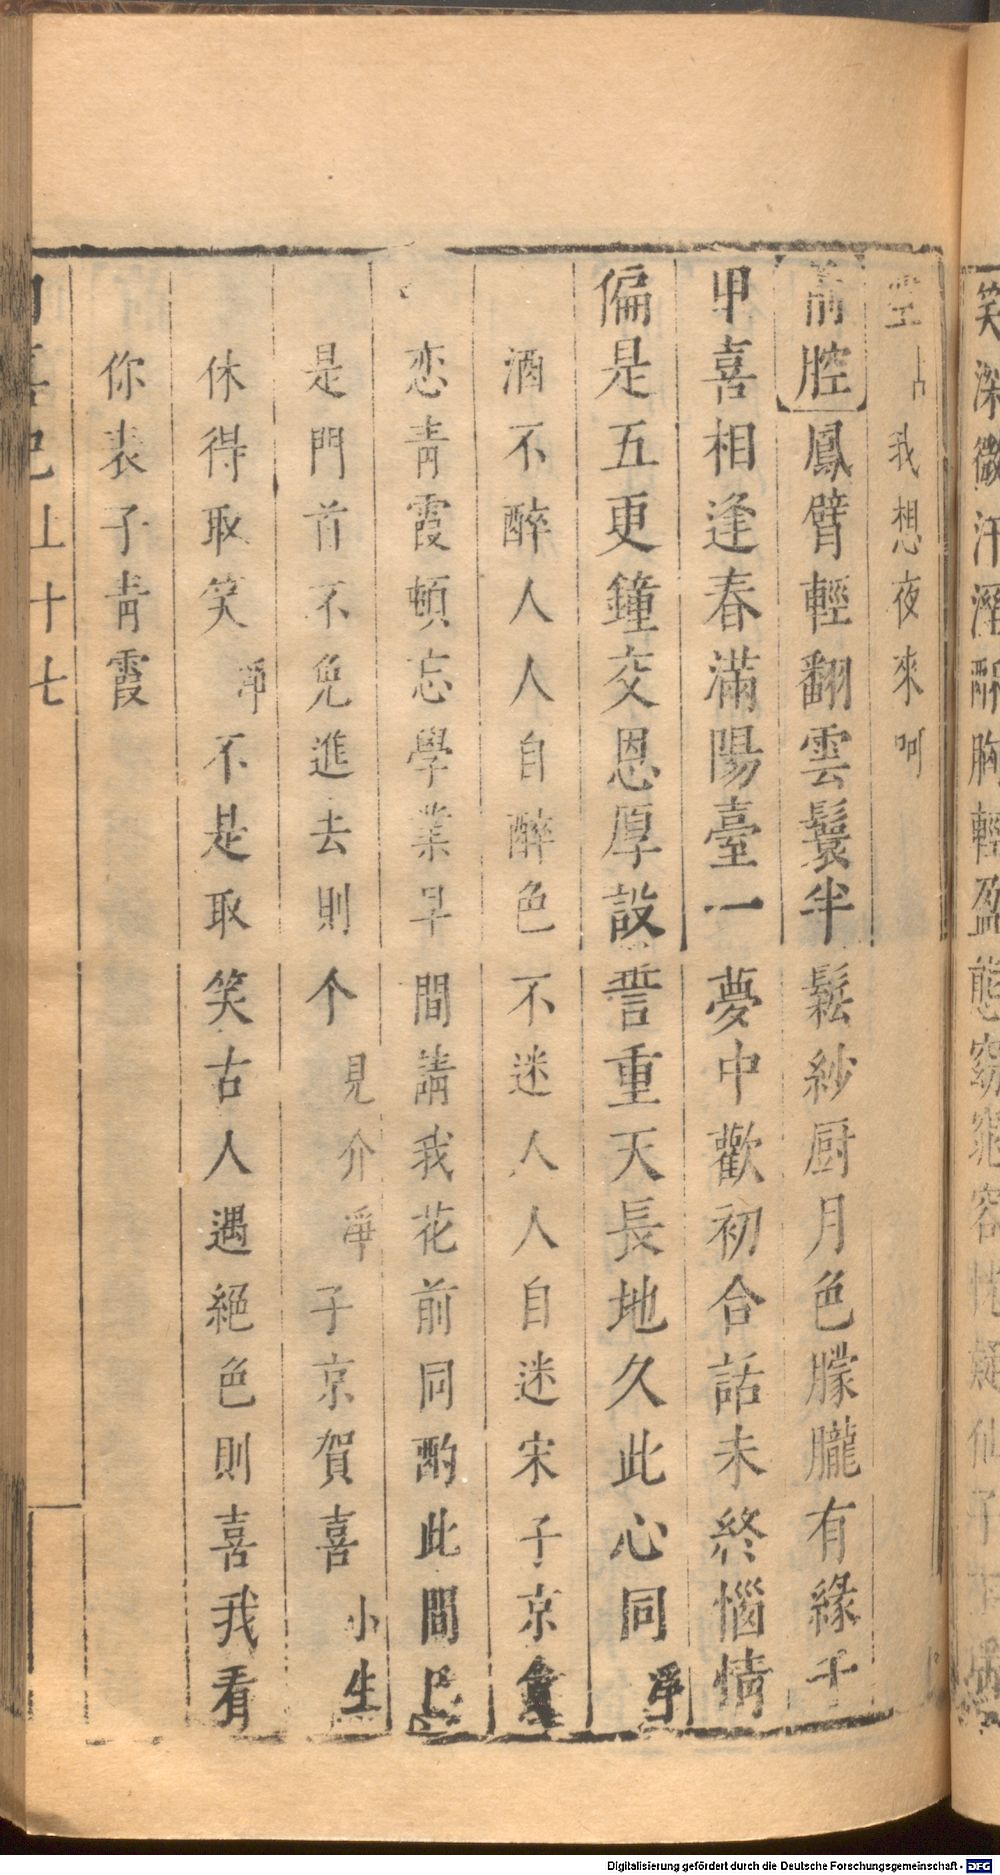 笑深微汗溼酥胸輕盈態窈窕容
我想夜來呵
前腔鳳臂輕翻雲鬟半鬆紗厨月色朦朧有緣千
里喜相逢春滿陽臺一夢中歡初合話未終惱情
偏是五更鐘交恩厚設誓重天長地久此心同淨
酒不醉人人自醉色不迷人人自迷宋子京貪
恋青霞頓忘學業早間請我花前同酌此間已
是門首不免進去則个見介淨子京賀喜小生
休得取笑淨不是取笑古人遇絕色則喜我看
你表子青霞
喜記上十七
Digitalisierung gefördert durch die Deutsche Forschungsgemeinschaft - DFG